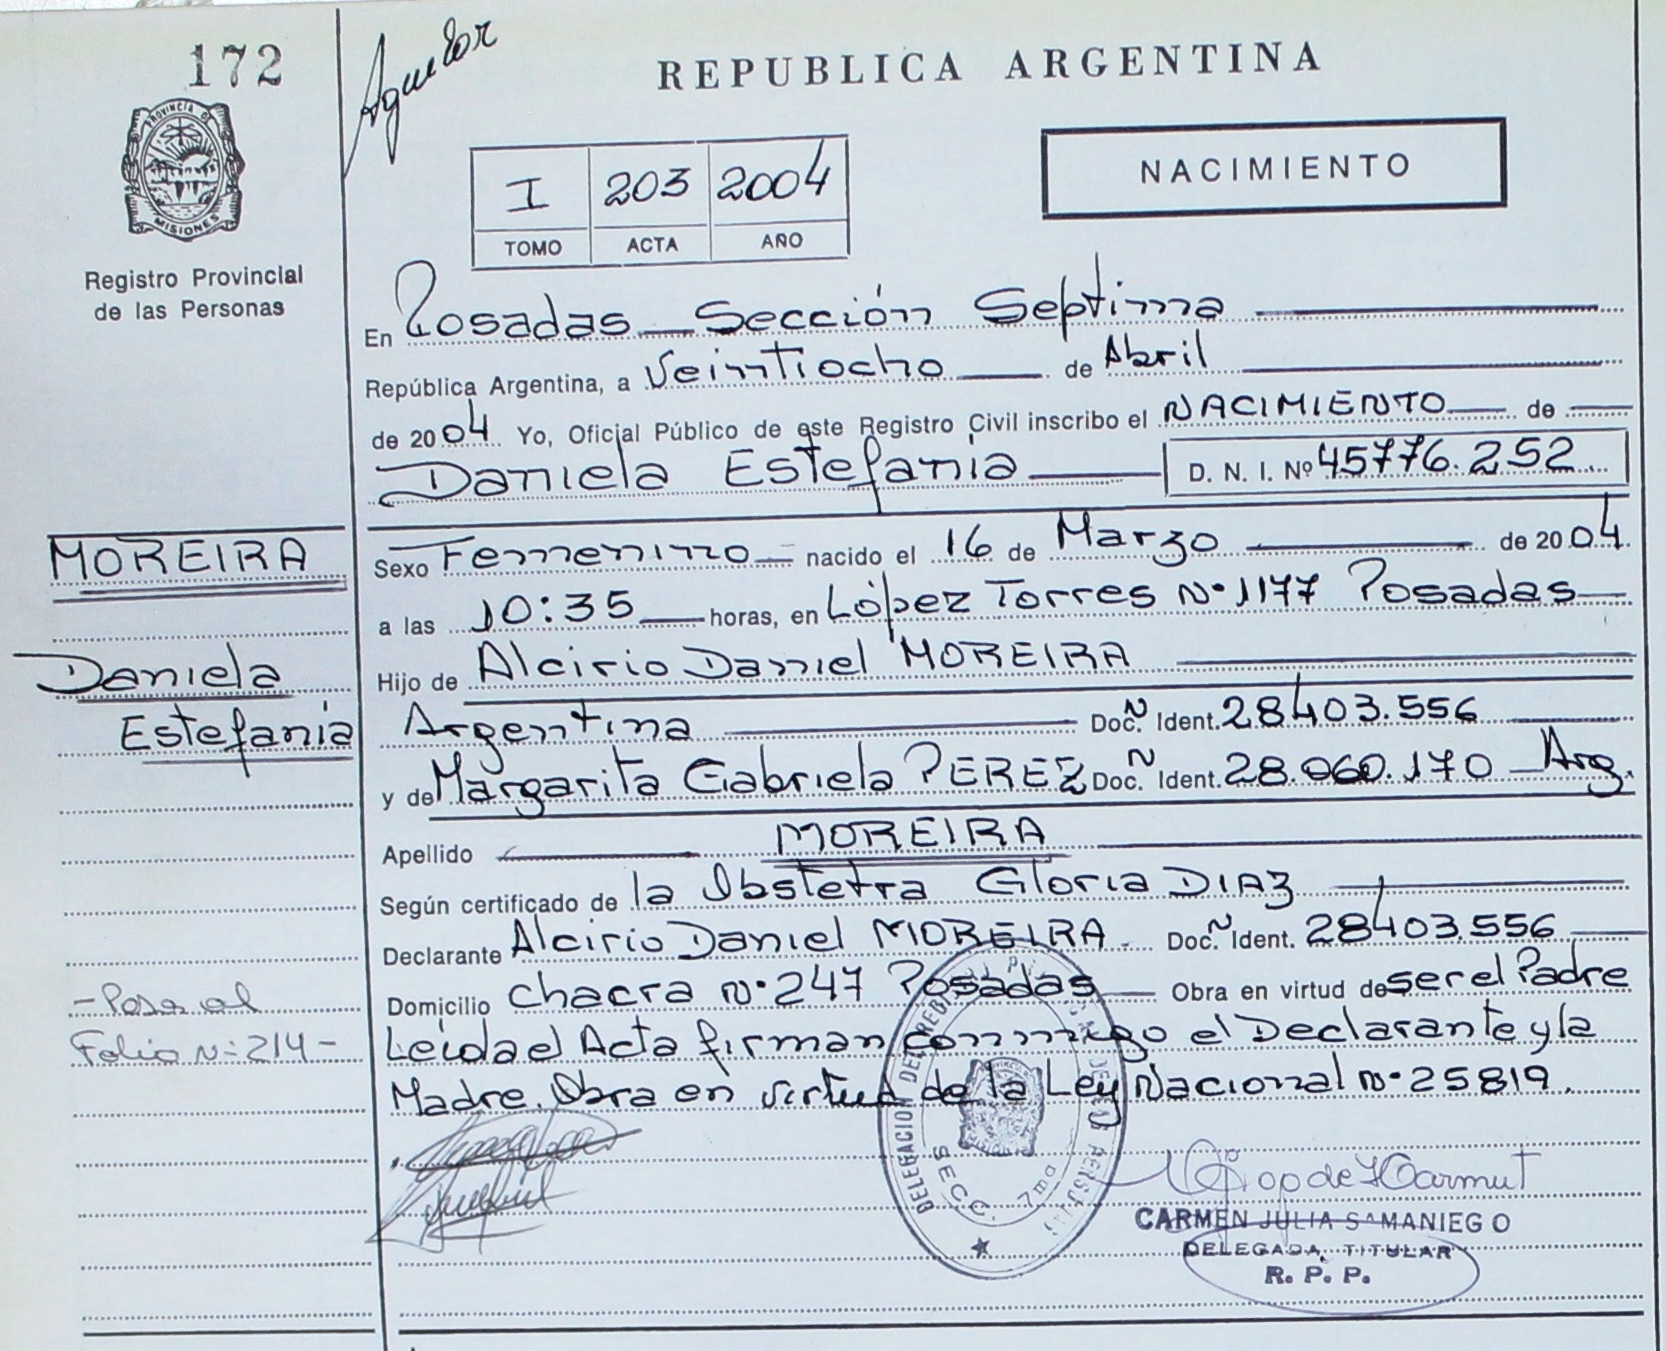 172
Aguilar
REPUBLICA ARGENTINA
PROVINCIA DE
MISIONES
Registro Provincial
de las Personas
I 203 2004
TOMO ACTA AÑO
NACIMIENTO
En Posadas Sección Septima
República Argentina, a Veintiocho de Abril
de 2004 Yo, Oficial Público de este Registro Civil inscribo el NACIMIENTO de
Daniela Estefania D. N. I. Nº 45776.252
MOREIRA
Daniela
Estefania
Sexo Femenino nacido el 16 de Marzo de 2004
a las 10:35 horas, en López Torres Nº 1177 Posadas
Hijo de Alcirio Daniel MOREIRA
Argentina Doc. N Ident. 28403.556
y de Margarita Gabriela PEREZ Doc. N Ident. 28.060.170 Arg.
Apellido MOREIRA
Según certificado de la Obstetra Gloria DIAZ
Declarante Alcirio Daniel MOREIRA Doc. N Ident. 28403.556
Domicilio Chacra Nº 247 Posadas Obra en virtud de ser el Padre
Leida el Acta firman conmigo el Declarante y la
Madre. Obra en virtud de la Ley Nacional Nº 25819.
- Pasa al
Folio Nº 214 -
DELEGACION DEL REGISTRO
SECC. 7ma
CARMEN JULIA SAMANIEGO
DELEGADA TITULAR
R. P. P.